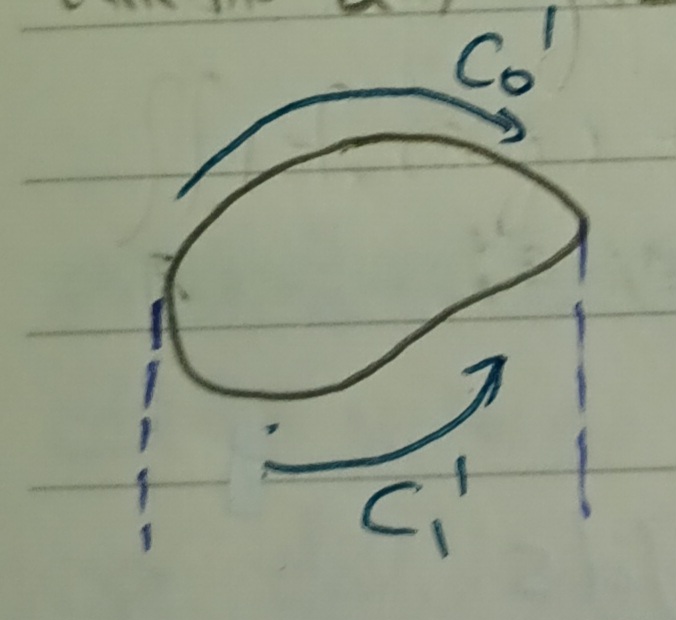 C₀'
C₁'